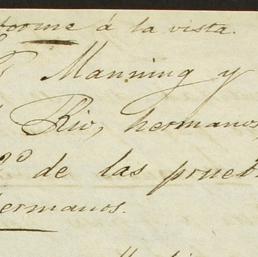 forme á la vista.
Manning y
Rio, hermanos
de las prueb
hermanos.